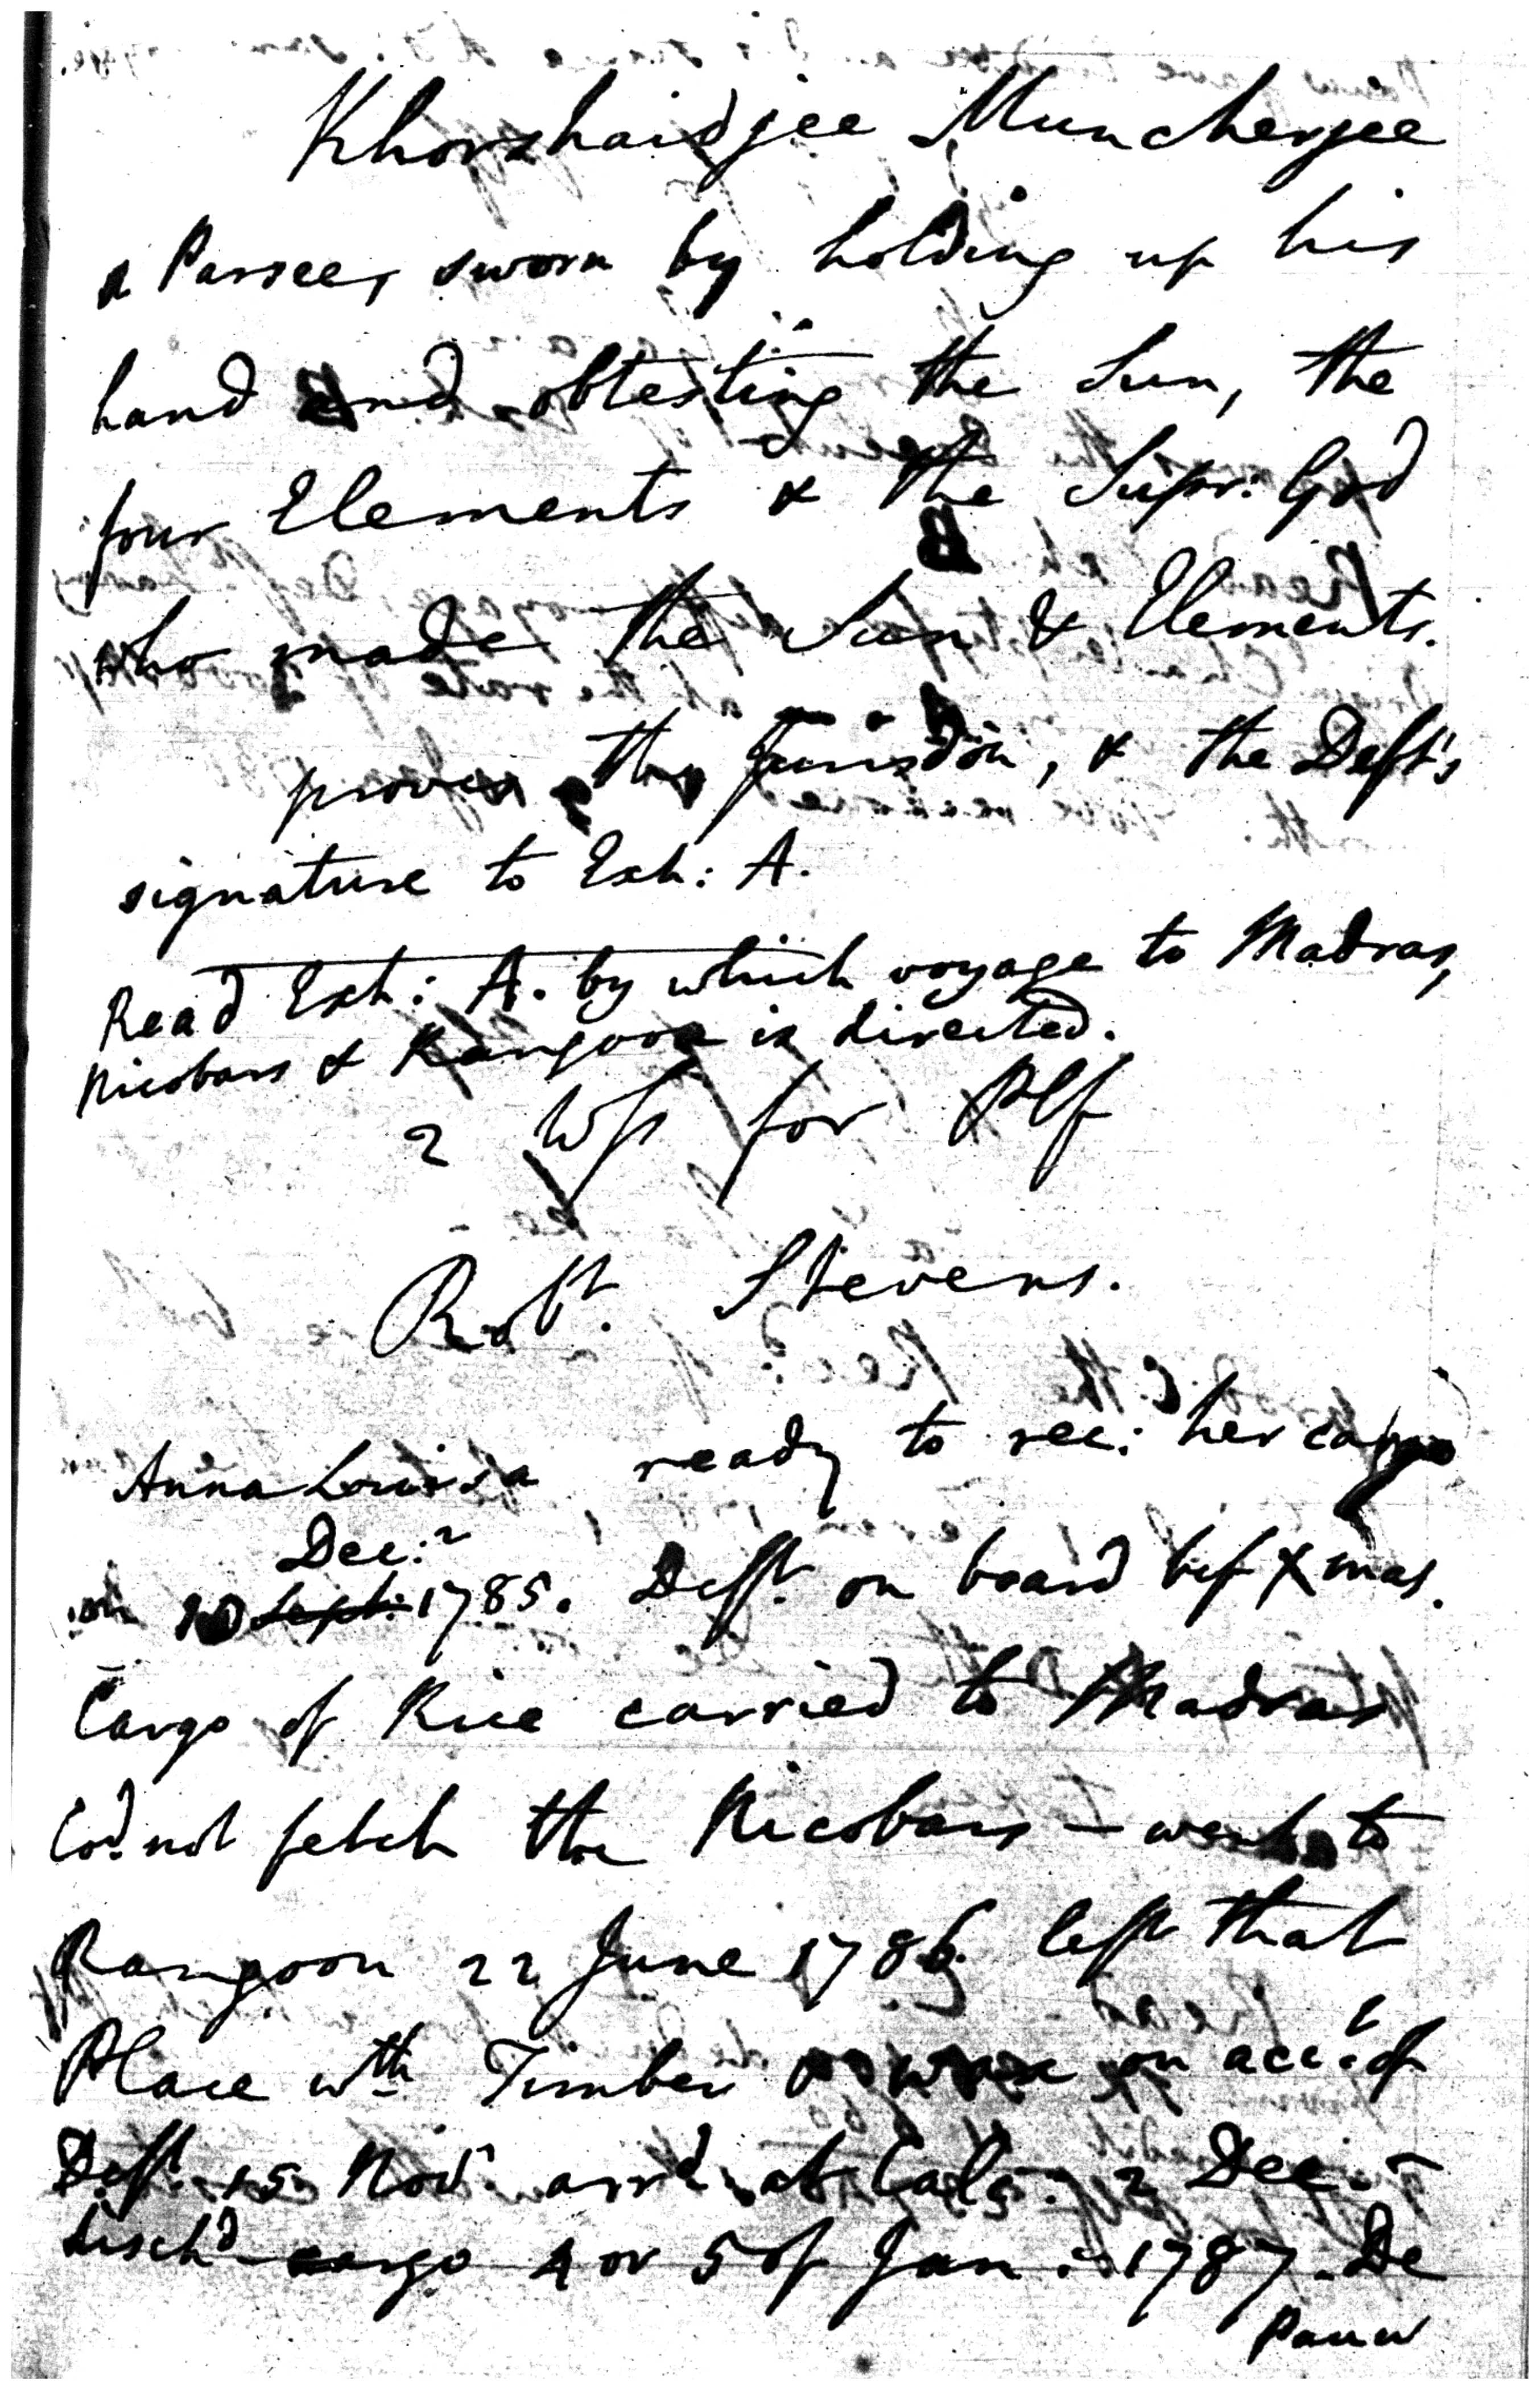 Khorshaidjee Muncherjee
a Parsee, sworn by holding up his
hand and obtesting the Sun, the
four Elements & the Supr: God
who made the Sun & Elements.
proves the Jurisdon, & the Deft's
signature to Exh: A.
Read Exh: A. by which voyage to Madras,
Nicobars & Rangoon is directed.
2 Wss for Plf
Robt. Stevens.
Anna Louisa ready to rec: her cargo
Dec:r
on 10 Sept: 1785. Deft. on board bef Xmas.
Cargo of Rice carried to Madras
Cod. not fetch the Nicobars – went to
Rangoon 22 June 1786. left that
Place wth Timber on acct. of
Deft. 15 Novr. arrd. at Calc: 2 Dec:r
disch'd cargo 4 or 5 of Jan: 1787. De
Pauw